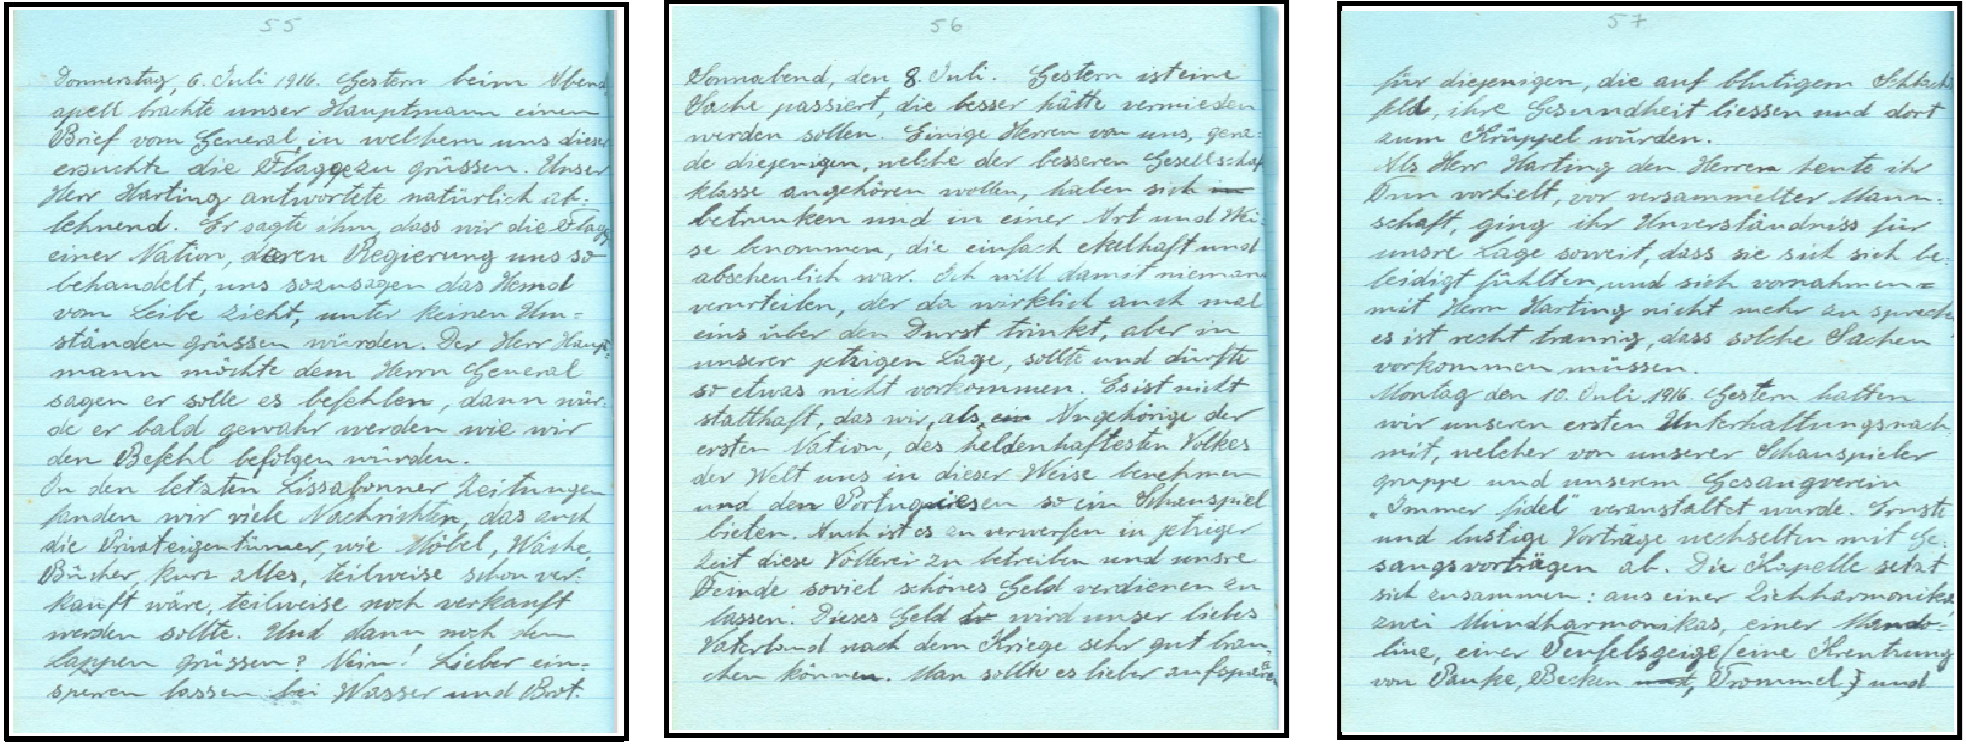 55
Donnerstag, 6. Juli 1916. Gestern beim Abend
apell brachte unser Hauptmann einen
Brief vom General, in welchem uns dieser
ersuchte die Flagge zu grüssen. Unser
Herr Harting antwortete natürlich ab-
lehnend. Er sagte ihm, dass wir die Flagge
einer Nation, deren Regierung uns so
behandelt, uns sozusagen das Hemd
vom Leibe zieht, unter keinen Um=
ständen grüssen würden. Der Herr Haupt=
mann möchte dem Herrn General
sagen er solle es befehlen, dann wür-
de er bald gewahr werden wie wir
den Befehl befolgen würden.
In den letzten Lissabonner Zeitungen
fanden wir viele Nachrichten, das auch
die Privateigentümer, wie Möbel, Wäsche,
Bücher, kurz alles, teilweise schon ver-
kauft wäre, teilweise noch verkauft
werden sollte. Und dann noch den
Lappen grüssen? Nein! Lieber ein=
sperren lassen bei Wasser und Brot.
56
Sonnabend, den 8. Juli. Gestern ist eine
Sache passiert, die besser hätte vermieden
werden sollen. Einige Herren von uns, gera-
de diejenigen, welche der besseren Gesellschaf
klasse angehören wollen, haben sich
betrunken und in einer Art und Wei-
se benommen, die einfach ekelhaft und
abscheulich war. Ich will damit niemand
verurteilen, der da wirklich auch mal
eins über den Durst trinkt, aber in
unserer jetzigen Lage, sollte und dürfte
so etwas nicht vorkommen. Es ist nicht
statthaft, das wir, als Angehörige der
ersten Nation, des heldenhaftesten Volkes
der Welt uns in dieser Weise benehmen
und den Portugiesen so ein Schauspiel
bieten. Auch ist es zu verwerfen in jetziger
Zeit diese Völlerei zu betreiben und unsre
Feinde soviel schönes Geld verdienen zu
lassen. Dieses Geld wird unser liebes
Vaterland nach dem Kriege sehr gut brau-
chen können. Man sollte es lieber aufsparen
57
für diejenigen, die auf blutigem Schlacht
feld, ihre Gesundheit liessen und dort
zum Krüppel würden.
Als Herr Harting den Herren heute ihr
Tun vorhielt, vor versammelter Mann-
schaft, ging ihr Unverständniss für
unsre Lage soweit, dass sie sich sich be-
leidigt fühlten, und sich vornahmen=
mit Herrn Harting nicht mehr zu sprechen
es ist recht traurig, dass solche Sachen
vorkommen müssen.
Montag den 10. Juli 1916. Gestern hatten
wir unseren ersten Unterhaltungsnach
mit, welcher von unserer Schauspieler
gruppe und unserem Gesangverein
„Immer fidel" veranstaltet wurde. Ernste
und lustige Vorträge wechselten mit Ge-
sangsvorträgen ab. Die Kapelle setzt
sich zusammen: aus einer Ziehharmonika,
zwei Mundharmonikas, einer Mando-
line, einer Teufelsgeige (eine Kreutzung
von Pauke, Becken, Trommel) und